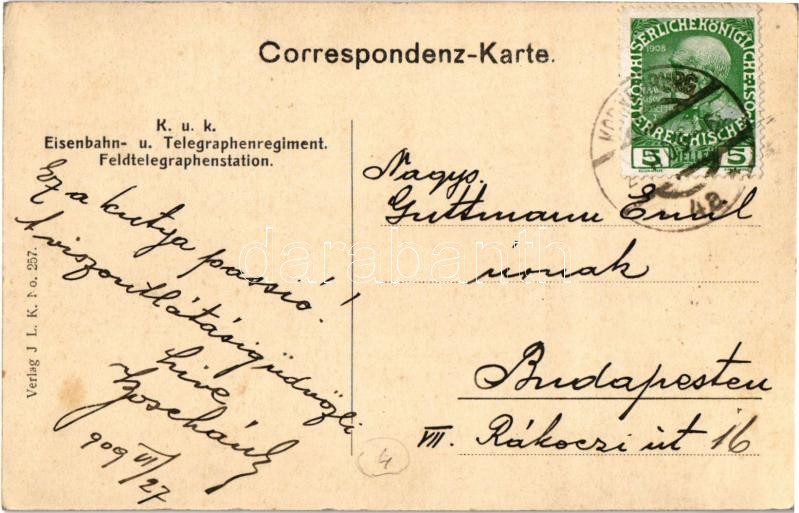 Correspondenz-Karte.
K. u. k.
Eisenbahn- u. Telegraphenregiment.
Feldtelegraphenstation.
Ez a kutya passió!
A viszontlátásig üdvözli
hive
909 VI/27
Verlag J. L. K. No. 257.
Nagys.
Guttmann Emil
úrnak
Budapesten
VII. Rákoczi út 16
4
KAISERLICHE KÖNIGLICHE
ÖSTERREICHISCHE
1908
5 HELLER 5
darabanth